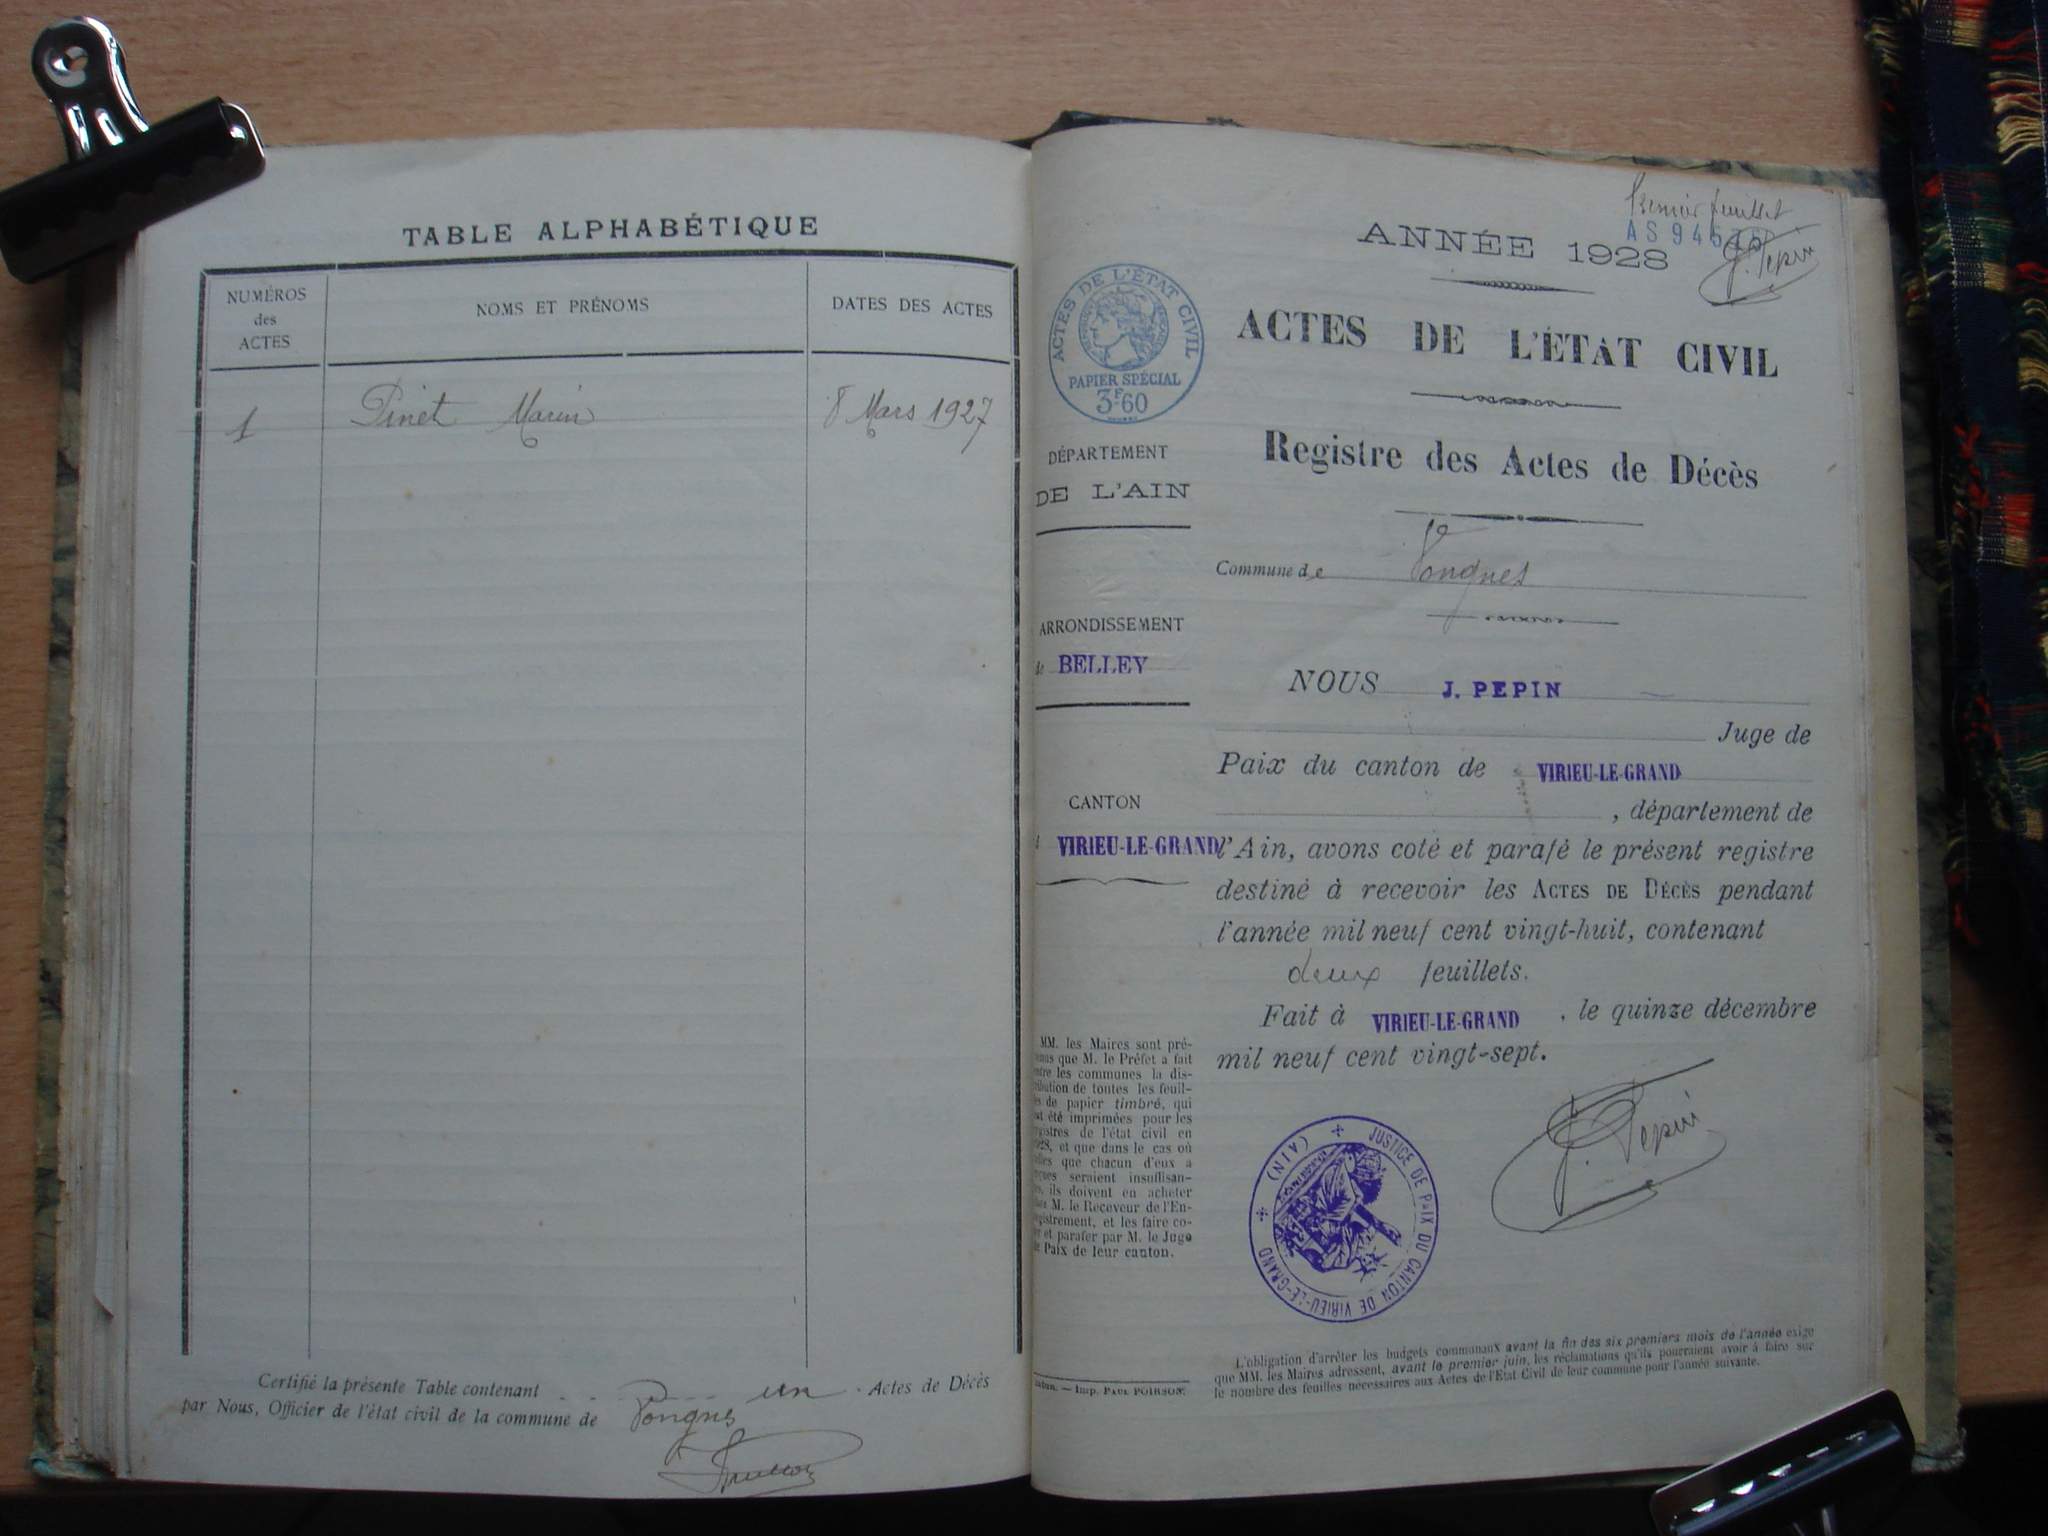 TABLE ALPHABÉTIQUE
NUMÉROS
des
ACTES
NOMS ET PRÉNOMS
DATES DES ACTES
1 Pinet Marin 8 Mars 1927
Certifié la présente Table contenant un Actes de Décès
par Nous, Officier de l'état civil de la commune de Vongnes
Premier feuillet
J. Pepin
ANNÉE 1928
ACTES DE L'ÉTAT CIVIL
PAPIER SPÉCIAL
3F60
ACTES DE L'ÉTAT CIVIL
Registre des Actes de Décès
DÉPARTEMENT
DE L'AIN
ARRONDISSEMENT
de BELLEY
CANTON
VIRIEU-LE-GRAND
MM. les Maires sont pré-
que M. le Préfet a fait
les communes la dis-
de toutes les feuil-
de papier timbré, qui
été imprimées pour les
de l'état civil en
et que dans le cas où
que chacun d'eux a
seraient insuffisan-
ils doivent en acheter
M. le Receveur de l'En-
et les faire co-
et parafer par M. le Juge
de Paix de leur canton.
Imp. PAUL POIRSON.
Commune de Vongnes
NOUS J. PEPIN
Juge de
Paix du canton de VIRIEU-LE-GRAND
, département de
l'Ain, avons coté et parafé le présent registre
destiné à recevoir les ACTES DE DÉCÈS pendant
l'année mil neuf cent vingt-huit, contenant
deux feuillets.
Fait à VIRIEU-LE-GRAND, le quinze décembre
mil neuf cent vingt-sept.
J. Pepin
JUSTICE DE PAIX DU CANTON DE VIRIEU-LE-GRAND
(AIN)
L'obligation d'arrêter les budgets communaux avant la fin des six premiers mois de l'année exige
que MM. les Maires adressent, avant le premier juin, les réclamations qu'ils pourraient avoir à faire sur
le nombre des feuilles nécessaires aux Actes de l'État Civil de leur commune pour l'année suivante.